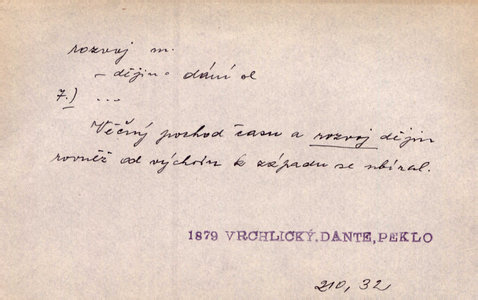 rozvoj m.
– dějin – dání se
7.) ...
Věčný pochod času a rozvoj dějin
rovněž od východu k západu se ubíral.
1879 VRCHLICKÝ, DANTE, PEKLO
210, 32